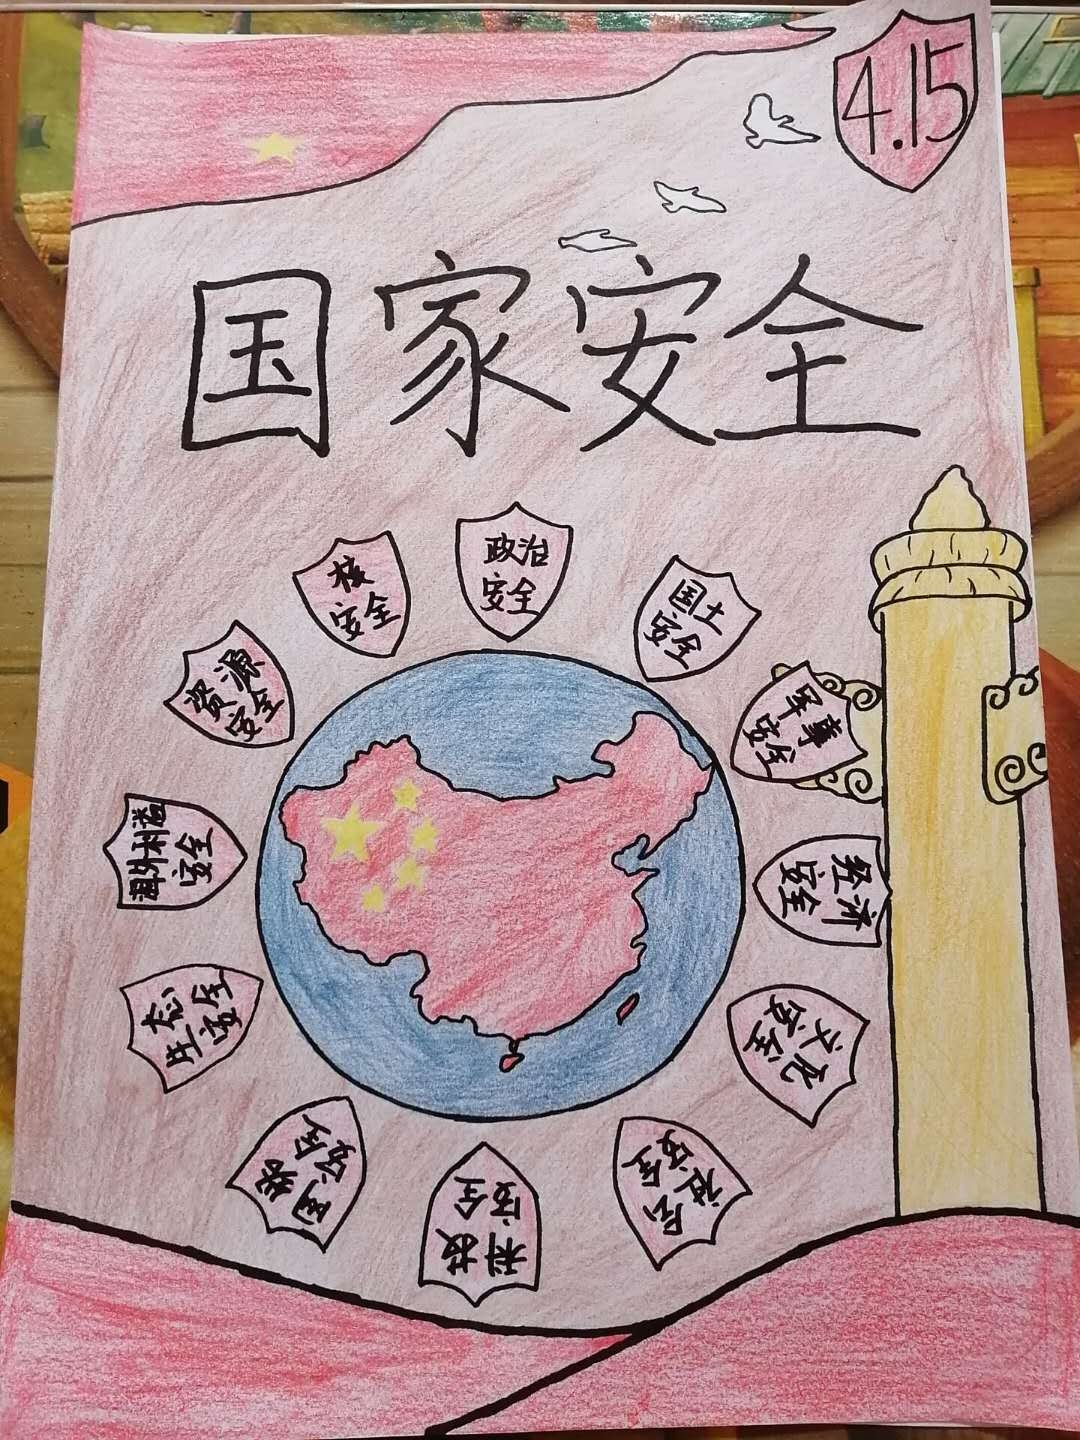 4.15
国家安全
政治
安全
国土
安全
军事
安全
经济
安全
文化
安全
社会
安全
科技
安全
网络
安全
生态
安全
海外利益
安全
资源
安全
核
安全